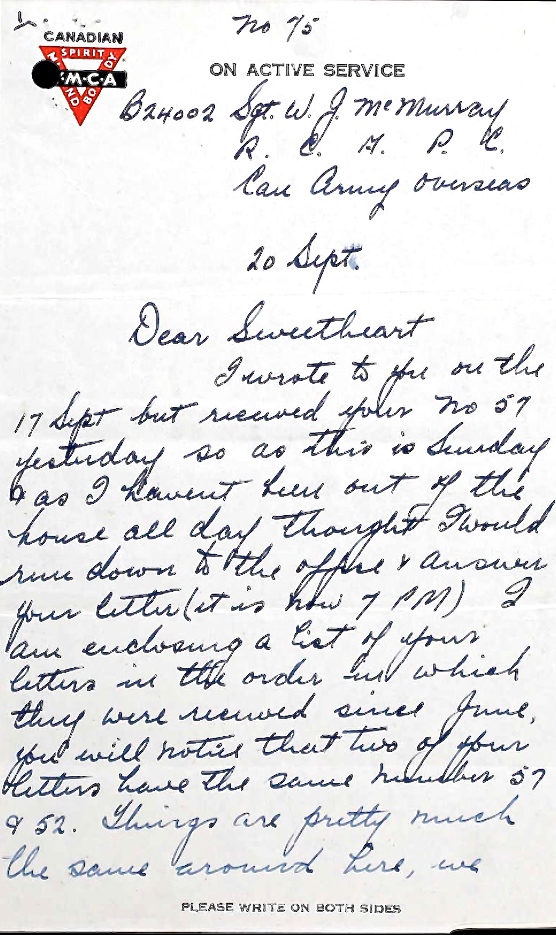 No 75
CANADIAN
SPIRIT
Y.M.C.A
MIND
BODY
ON ACTIVE SERVICE
B24002 Sgt. W. J. McMurray
R. C. A. P. C.
Can Army Overseas
20 Sept.
Dear Sweetheart
I wrote to you on the
17 Sept but received your No 57
yesterday so as this is Sunday
& as I havent been out of the
house all day thought I would
run down to the office & answer
your letter (it is now 7 PM) I
am enclosing a list of your
letters in the order in which
they were received since June,
you will notice that two of your
letters have the same number 57
& 52. Things are pretty much
the same around here, we
PLEASE WRITE ON BOTH SIDES